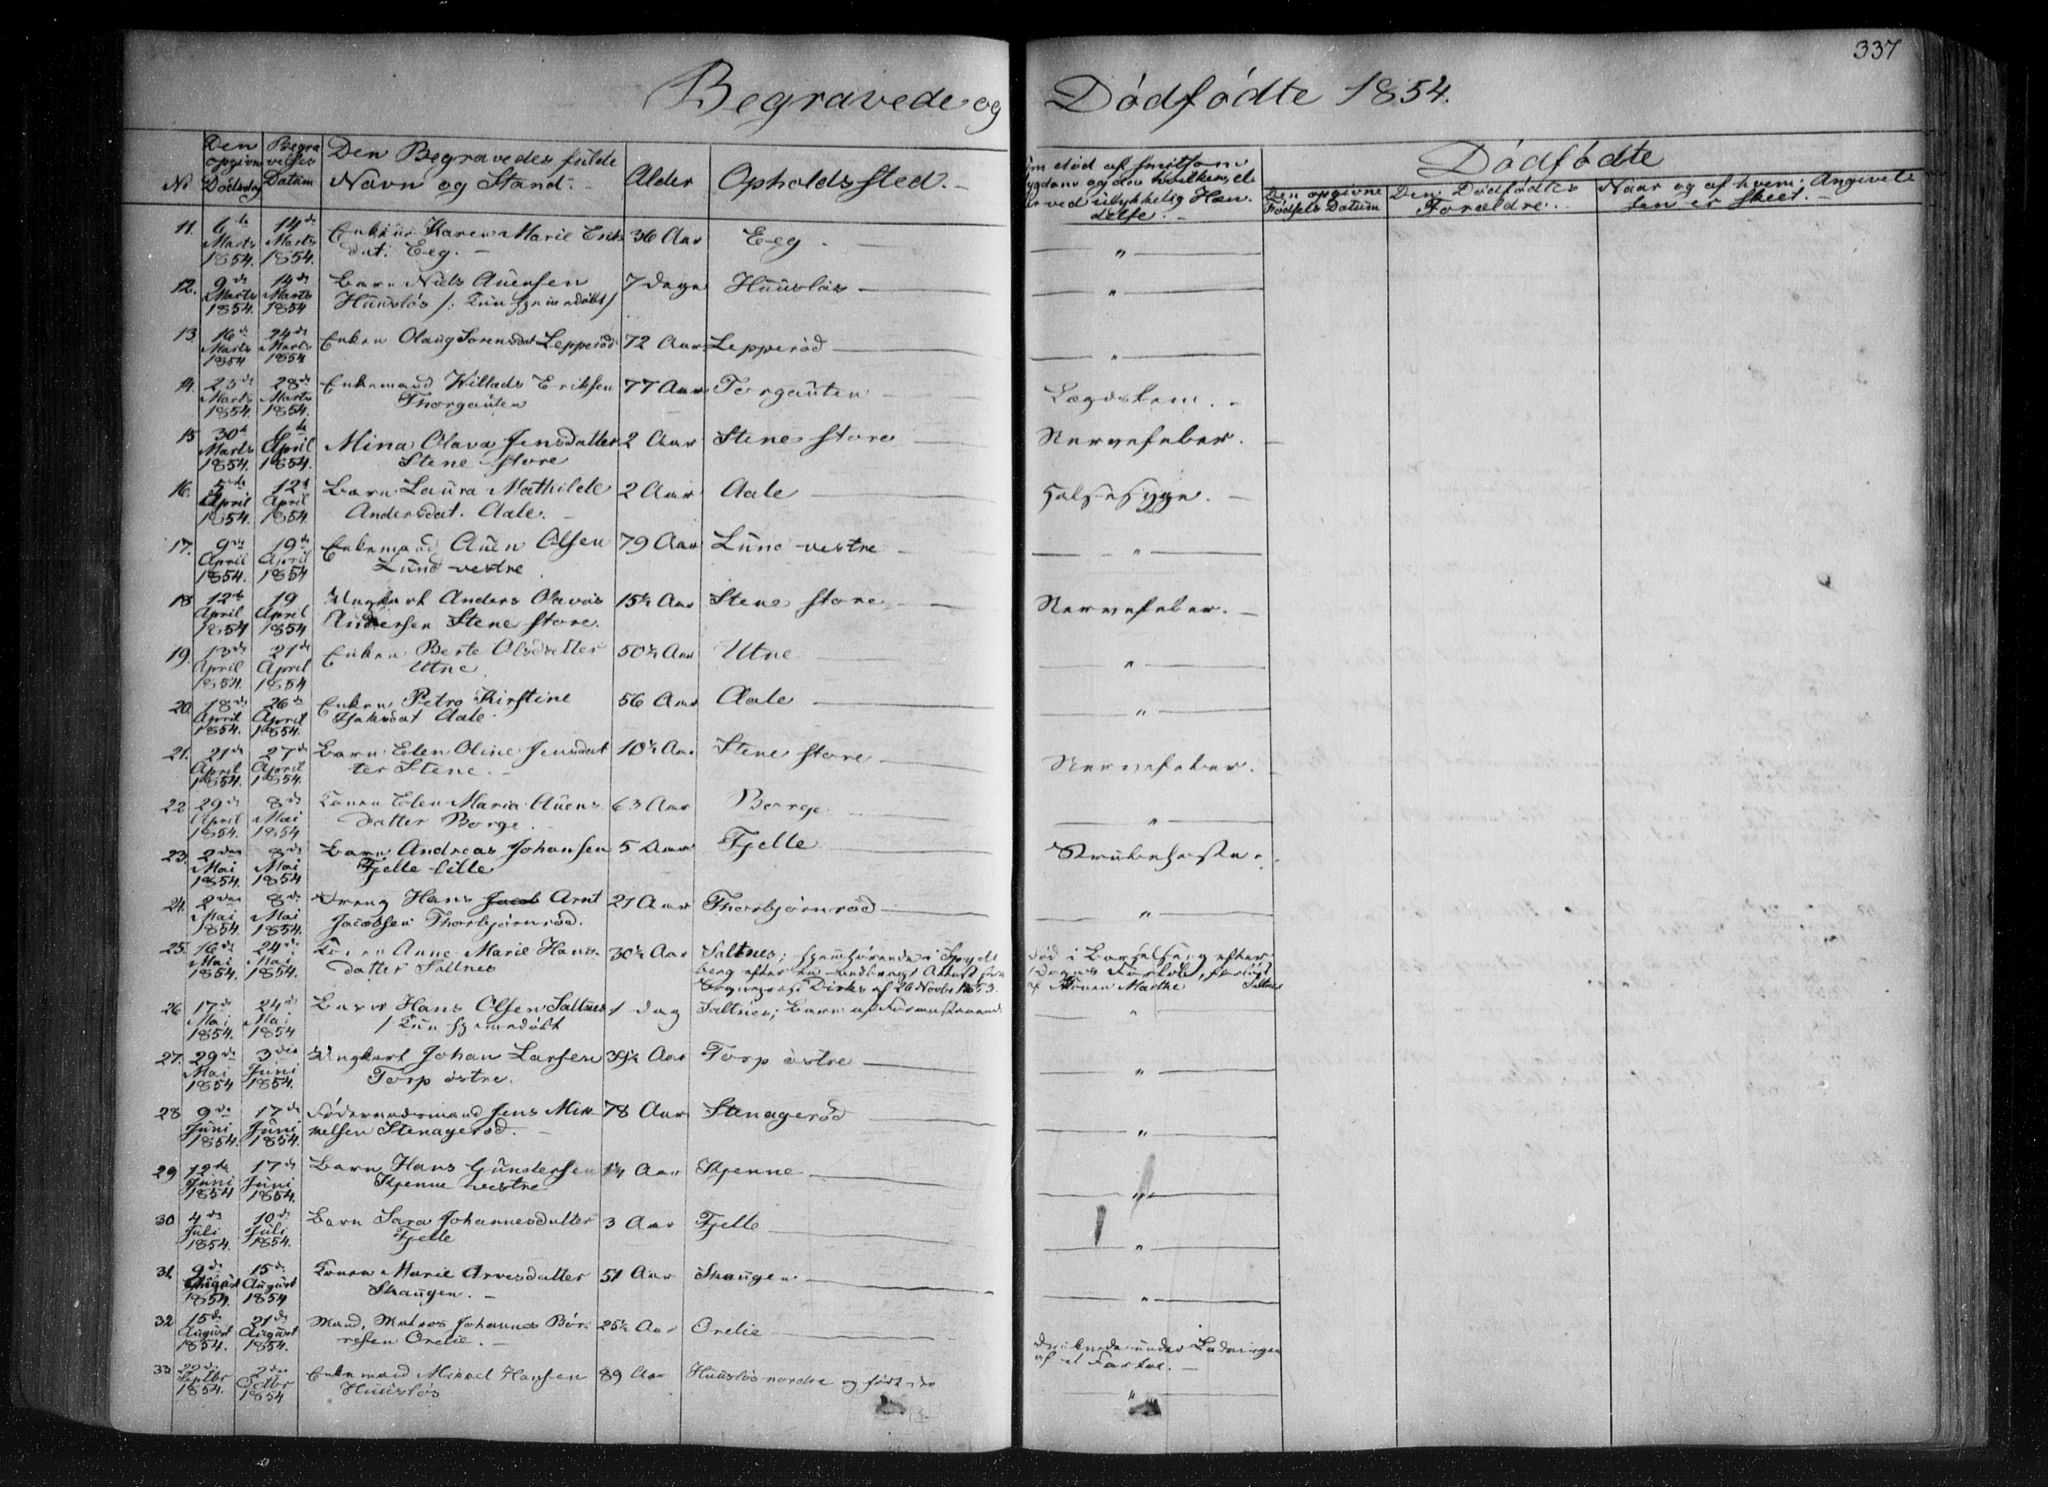 337
Begravede og Dødfødte 1854.
No
Den opgivne Dødsdag
Begravelses Datum
Den Begravedes fulde Navn og Stand.
Alder
Opholdssted.
død af smitsom
og den hvilken, el
ved ulykkelig Hæn
delse.
Dødfødte
Den opgivne Fødsels Datum
Den Dødfødtes Forældre.
Naar og af hvem Angivel
sen er skeet.
11. 6te Marts 1854. 14de Marts 1854. Karen Marie Eriks 36 Aar Eeg "
dat. Eeg.
12. 9de Marts 1854. 14de Marts 1854 Barn Niels Auensen 7 Dage Huusløs "
Huusløs /: Kun hjemmedøbt /
13. 16de Marts 1854 24de Marts 1854 Enken Olaug Sørensdat Lepperød 72 Aar Lepperød "
14. 23de Marts 1854. 28de Marts 1854. Enkemand Willads Eriksen 77 Aar Torgauten Lægdslem.
Thorgauten
15 30te Marts 1854. 6te April 1854. Mina Olava Jensdatter 2 Aar Stene store Nervefeber.
Stene store
16. 5te April 1854. 12te April 1854 Barn Laura Mathilde 2 Aar Aale Halsesyge.
Andersdat. Aale.
17. 9de April 1854. 19de April 1854 Enkemand Auen Olsen 79 Aar Lund vestre "
Lund vestre
18 12te April 1854 19 April 1854 Ungkarl Anders Olavus 15½ Aar Stene store Nervefeber.
Andersen Stene store.
19. 13de April 1854. 21de April 1854 Enken Berte Olsdatter 50½ Aar Utne "
Utne
20. 18de April 1854. 26de April 1854. Enken Petro Kirstine 56 Aar Aale "
Isaksdat Aale.
21. 21de April 1854. 27de April 1854. Barn Elen Oline Jensdat 10½ Aar Stene store Nervefeber.
ter Stene.
22 29de April 1854. 8de Mai 1854 Konen Elen Maria Auens 63 Aar Borge "
datter Borge.
23. 2den Mai 1854. 8de Mai 1854 Barn Andreas Johansen 5 Aar Fjelle Strubehoste.
Fjelle lille
24. 2den Mai 1854. 8de Mai 1854. Dreng Hans Jacob Arnt 21 Aar Thorbjørnrød "
Jacobsen Thorbjørnrød.
25. 16de Mai 1854. 24de Mai 1854. Konen Anne Marie Hans- 30½ Aar Saltnes; hjemhørende i Spyde
datter Saltnes
berg efter en medbragt Attest fra
Dirks af 26 Novbr 1853.
død i Barselseng efter
Dages Forløb, forløst
af Konen Marthe Saltnes
26 17de Mai 1854. 24de Mai 1854 Barn Hans Olsen Saltnes 1 dag Saltnes; Barn af Formenstaaende "
/ Kun hjemmedøbt
27. 29de Mai 1854. 3die Juni 1854. Ungkarl Johan Larsen 39½ Aar Torp østre "
Torp østre.
28 9de Juni 1854. 17de Juni 1854. Føderaadsmand Jens Mik 78 Aar Stenagerød "
kelsen Stenagerød.
29 12te Juni 1854 17de Juni 1854. Barn Hans Gundersen 1¼ Aar Skjenne "
Skjenne vestre.
30 4de Juli 1854. 10de Juli 1854. Barn Sara Johannesdatter 3 Aar Fjelle "
Fjelle
31. 9de August 1854. 15de August 1854 Konen Marie Arvesdatter 51 Aar Skaugen "
Skaugen.
32 15de August 1854. 21de August 1854. Mand. Matros Johannes Bør- 25½ Aar Orelie
resen Orelie.
Druknede under Ladningen
af et Fartøi.
33 22de Septbr 1854. 2den Octbr 1854 Enkemand Mikael Hansen 89 Aar Huusløs nordre og født der "
Huusløs